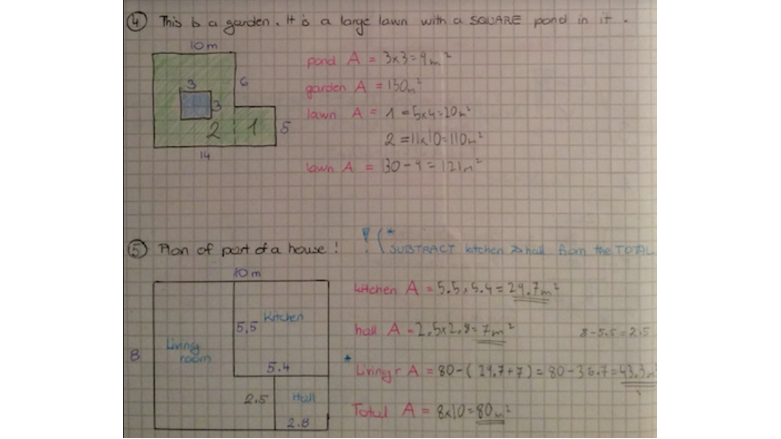 ④ This is a garden. It is a large lawn with a SQUARE pond in it.
10 m
3
3
6
2
1
5
14
pond A = 3x3=9m²
garden A = 130m²
lawn A = 1 = 5x4=20m²
2 = 11x10=110m²
lawn A = 130 - 9 = 121m²
⑤ Plan of part of a house!
* SUBTRACT kitchen & hall from the TOTAL
10 m
8
Living room
5,5
Kitchen
5.4
2.5
Hall
2.8
kitchen A = 5.5 x 5.4 = 29.7m²
hall A = 2,5x2,8 = 7m²
8-5.5=2.5
* Living r A = 80-(29,7+7)=80-36.7=43,3m
Total A = 8x10=80m²